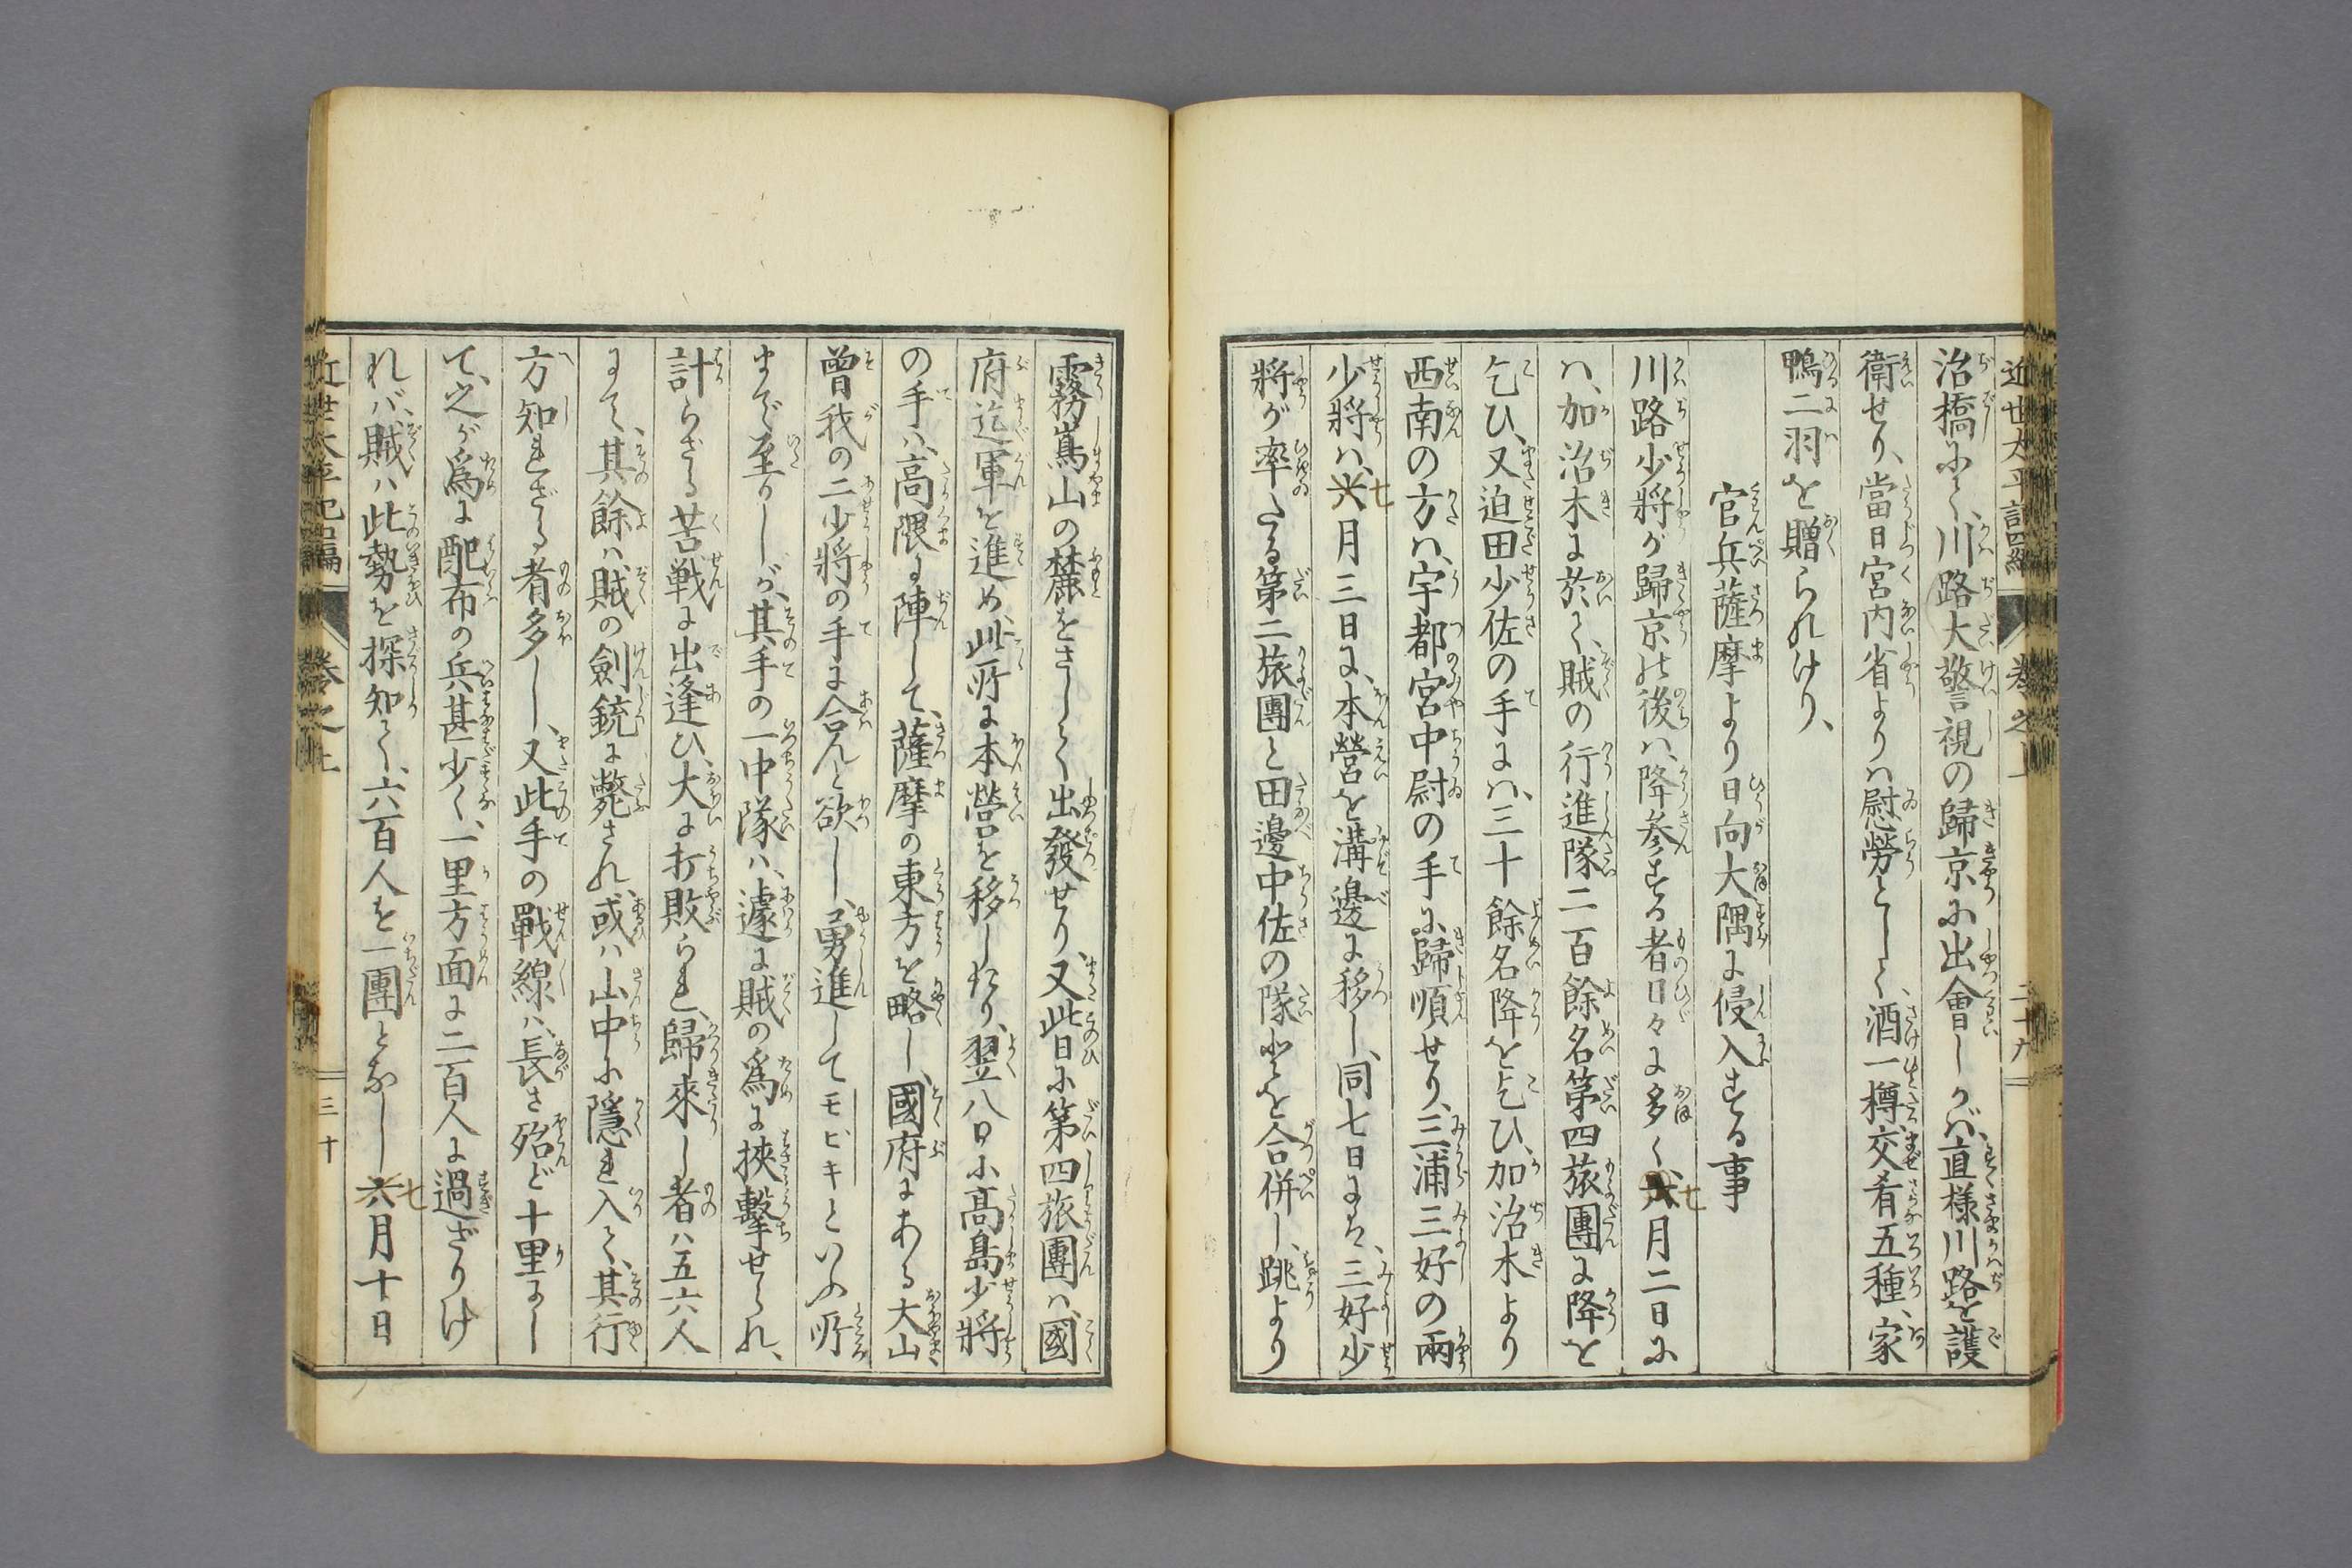 治橋にて、川路大警視の歸京に出會しかバ、直様川路を護
衛せり、當日宮内省よりハ慰勞として、酒一樽、交肴五種、家
鴨二羽を贈られけり、
官兵薩摩より日向大隅に侵入する事
川路少將が歸京の後ハ、降参する者日々に多く、七月二日に
ハ、加治木に於て、賊の行進隊二百餘名第四旅團に降を
乞ひ、又迫田少佐の手にハ、三十餘名降を乞ひ、加治木より
西南の方ハ、宇都宮中尉の手に歸順せり、三浦三好の兩
少將ハ、七月三日に、本營を溝邊に移し、同七日にハ、三好少
將が率たる第二旅團と田邊中佐の隊とを合併し、跳より
霧嶌山の麓をさして出發せり、又此日に第四旅團ハ、國
府迄軍を進め、此所に本營を移したり、翌八日に高島少將
の手ハ、高隈に陣して、薩摩の東方を略し、國府にある大山
曽我の二少將の手に合んと欲し、勇進してモビキといふ所
まで至りしが、其手の一中隊ハ、遽に賊の爲に挾擊せられ、
計らざる苦戰に出逢ひ、大に打敗られ、歸來し者ハ五六人
にて、其餘ハ賊の劍銃に斃され、或ハ山中に隱れ入て、其行
方知れざる者多し、又此手の戰線ハ、長さ殆ど十里にし
て、之が爲に配布の兵甚少く、一里方面に二百人に過ざりけ
れバ、賊ハ此勢を探知て、六百人を一團となし七月十日
近世太平記四編
卷之上
三十